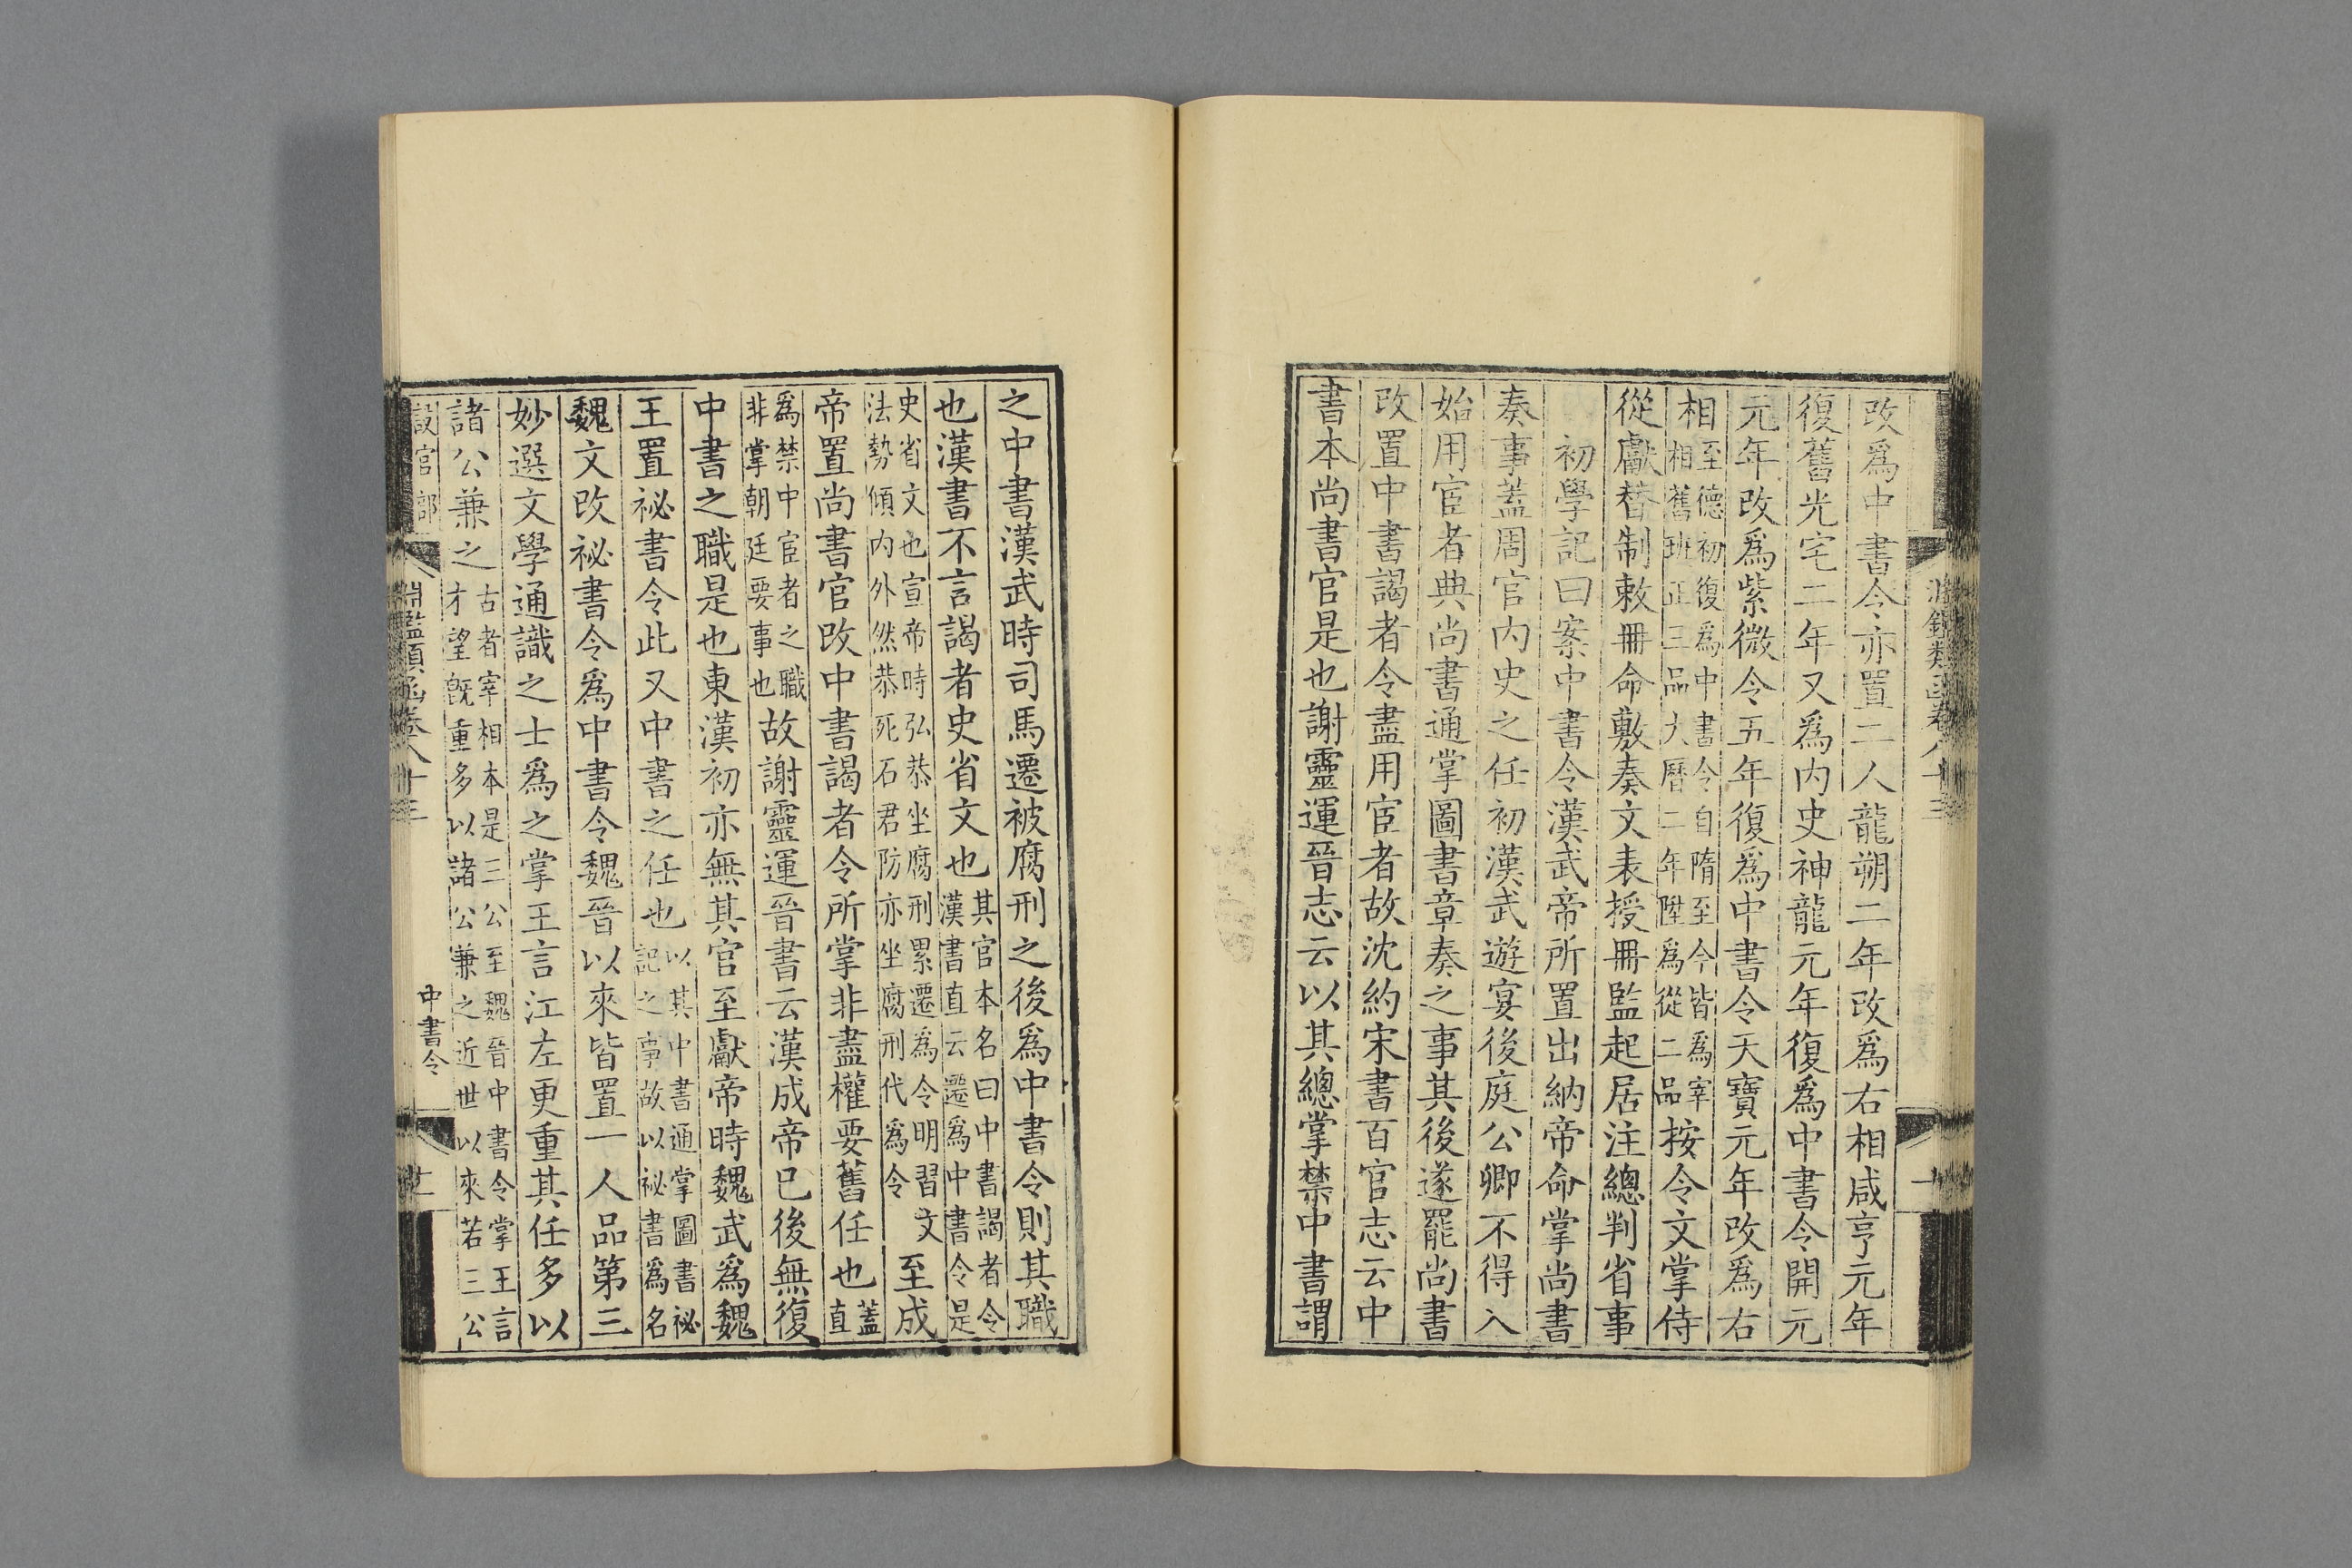 改爲中書令亦置二人龍朔二年改爲右相咸亨元年
復舊光宅二年又爲内史神龍元年復爲中書令開元
元年改爲紫微令五年復爲中書令天寶元年改爲右
相至德初復爲中書令自隋至今皆爲宰相舊班正三品大曆二年陞爲從二品按令文掌侍
從獻替制敕冊命敷奏文表授冊監起居注總判省事
初學記曰案中書令漢武帝所置出納帝命掌尚書
奏事蓋周官内史之任初漢武遊宴後庭公卿不得入
始用宦者典尚書通掌圖書章奏之事其後遂罷尚書
改置中書謁者令盡用宦者故沈約宋書百官志云中
書本尚書官是也謝靈運晉志云以其總掌禁中書謂
之中書漢武時司馬遷被腐刑之後爲中書令則其職
也漢書不言謁者史省文也其官本名曰中書謁者令漢書直云遷爲中書令是
史省文也宣帝時弘恭坐腐刑累遷爲令明習文法勢傾内外然恭死石君防亦坐腐刑代爲令至成
帝置尚書官改中書謁者令所掌非盡權要舊任也蓋直
爲禁中宦者之職非掌朝廷要事也故謝靈運晉書云漢成帝已後無復
中書之職是也東漢初亦無其官至獻帝時魏武爲魏
王置祕書令此又中書之任也以其中書通掌圖書祕記之事故以祕書爲名
魏文改祕書令爲中書令魏晉以來皆置一人品第三
妙選文學通識之士爲之掌王言江左更重其任多以
諸公兼之古者宰相本是三公至魏晉中書令掌王言才望旣重多以諸公兼之近世以來若三公
設官部
淵鑑類函卷八十三
中書令
十一